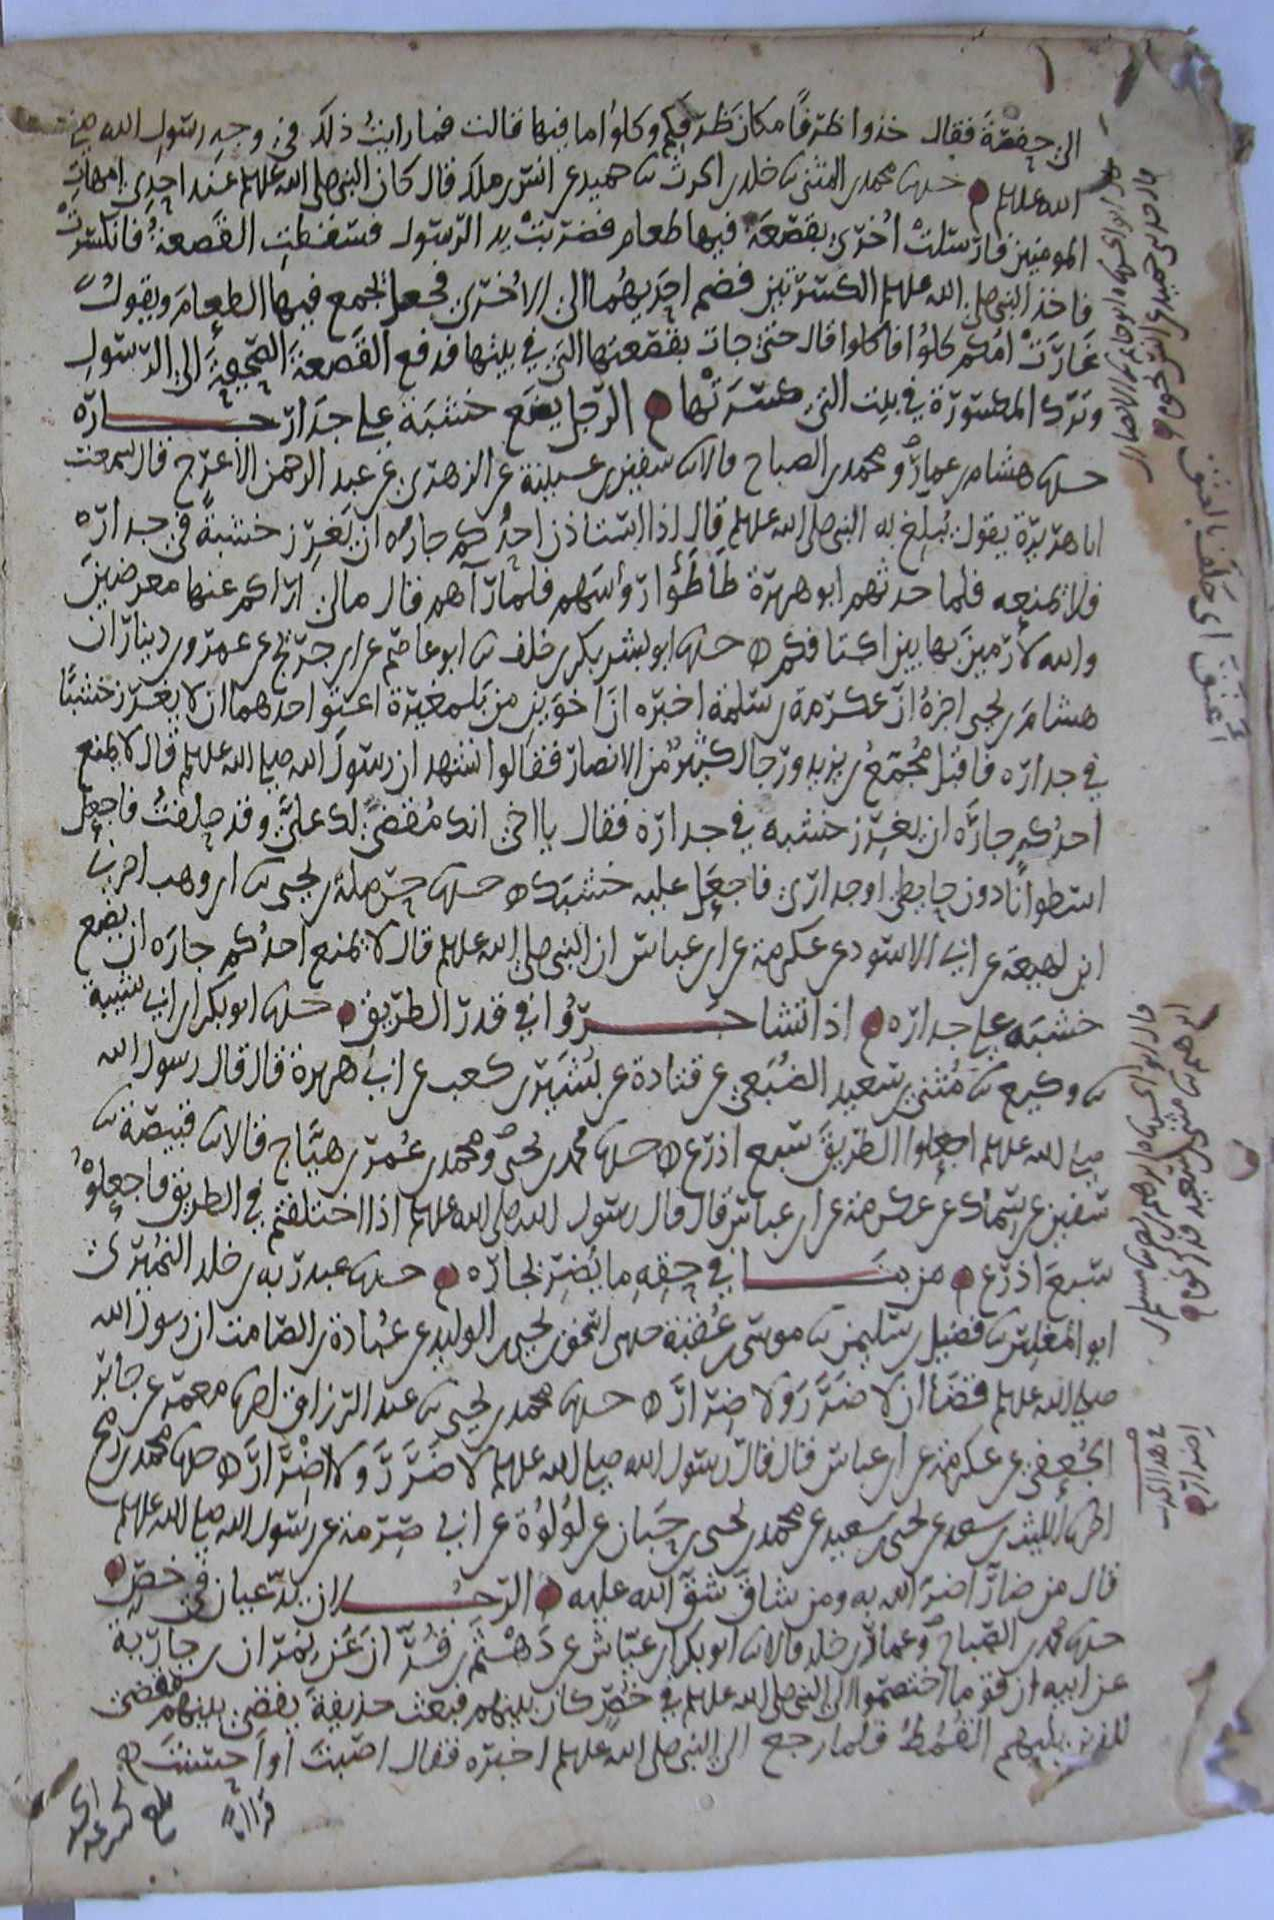 الى حفصة فقال خذوا ظرفا مكان ظرفكم وكلوا ما فيها قالت فما رايت ذلك في وجه رسول الله صلى
الله عليه وسلم حدثنا محمد بن المثنى ثنا خلد بن الحرث ثنا حميد عن انس بن ملك قال كان النبي صلى الله عليه وسلم عند احدى امهات
المومنين فارسلت اخرى بقصعة فيها طعام فضربت يد الرسول فسقطت القصعة فانكسرت
فاخذ النبي صلى الله عليه وسلم الكسرتين فضم احديهما الى الاخرى فجعل يجمع فيها الطعام ويقول
غارت امكم كلوا فاكلوا قال حتى جات بقصعتها التي في بيتها فدفع القصعة الصحيحة الى الرسول
وترك المكسورة في بيت التي كسرتها الرجل يضع خشبة على جدار جاره
حدثنا هشام بن عمار ومحمد بن الصباح قالا ثنا سفين بن عيينة عن الزهري عن عبد الرحمن الاعرج قال سمعت
ابا هريرة يقول يبلغ به النبي صلى الله عليه وسلم قال اذا استاذن احدكم جاره ان يغرز خشبة في جداره
فلا يمنعه فلما حدثهم ابو هريرة طاطؤا رؤسهم فلما رآهم قال مالي اراكم عنها معرضين
والله لارمين بها بين اكتافكم حدثنا ابو بشر بكر بن خلف ثنا ابو عاصم عن ابن جريج عن عمرو بن دينار ان
هشام بن يحيى اخبره ان عكرمة بن سلمة اخبره ان اخوين من بلمغيرة اعتق احدهما ان لا يغرز خشبا
في جداره فاقبل مجمع بن يزيد ورجال كثير من الانصار فقالوا نشهد ان رسول الله صلى الله عليه وسلم قال لا يمنع
احدكم جاره ان يغرز خشبه في جداره فقال يا اخي انك مقضي لك علي وقد حلفت فاجعل
اسطوانا دون حايطي او جداري فاجعل عليه خشبك حدثنا حرملة بن يحيى ثنا ابن وهب اخبرني
ابن لهيعة عن ابي الاسود عن عكرمة عن ابن عباس ان النبي صلى الله عليه وسلم قال لا يمنع احدكم جاره ان يضع
خشبه على جداره اذا تشاجروا في قدر الطريق حدثنا ابو بكر ابن ابي شيبة
ثنا وكيع ثنا مثنى بن سعيد الضبعي عن قتادة عن بشير بن كعب عن ابي هريرة قال قال رسول الله
صلى الله عليه وسلم اجعلوا الطريق سبع اذرع حدثنا محمد بن يحيى ومحمد بن عمر بن هياج قالا ثنا قبيصة ثنا
سفين عن سماك عن عكرمة عن ابن عباس قال قال رسول الله صلى الله عليه وسلم اذا اختلفتم في الطريق فاجعلوه
سبع اذرع من بنا في حقه ما يضر بجاره حدثنا عبد ربه بن خلد النميري
ابو المغلس ثنا فضيل بن سليمن ثنا موسى بن عقبة حدثني اسحق بن يحيى بن الوليد عن عبادة بن الصامت ان رسول الله
صلى الله عليه وسلم قضا ان لا ضرر ولا ضرار حدثنا محمد بن يحيى ثنا عبد الرزاق اخبرنا معمر عن جابر
الجعفي عن عكرمة عن ابن عباس قال قال رسول الله صلى الله عليه وسلم لا ضرر ولا اضرار حدثنا محمد بن رمح
اخبرنا الليث بن سعد عن يحيى بن سعيد عن محمد بن يحيى بن حبان عن لؤلؤة عن ابي صرمة عن رسول الله صلى الله عليه وسلم
قال من ضار اضر الله به ومن شاق شق الله عليه الرجلان يدعيان في خص
حدثنا محمد بن الصباح وعمار بن خلد قالا ثنا ابو بكر ابن عياش عن دهثم بن قران عن نمران بن جارية
عن ابيه ان قوما اختصموا الى النبي صلى الله عليه وسلم في خص كان بينهم فبعث حذيفة يقضي بينهم فقضى
للذين يليهم القمط فلما رجع الى النبي صلى الله عليه وسلم اخبره فقال اصبت او احسنت
قال ابو الحسن ثنا ابو حاتم ثنا الانصاري
قال حدثني حميد عن انس نحوه
اعتق اي حلف بالعتق
قال ابو الحسن ثنا
ابراهيم ثنا مثنى بن سعيد فذكر نحوه
في هذا الحديث
اضرار
بلغ
قراءة